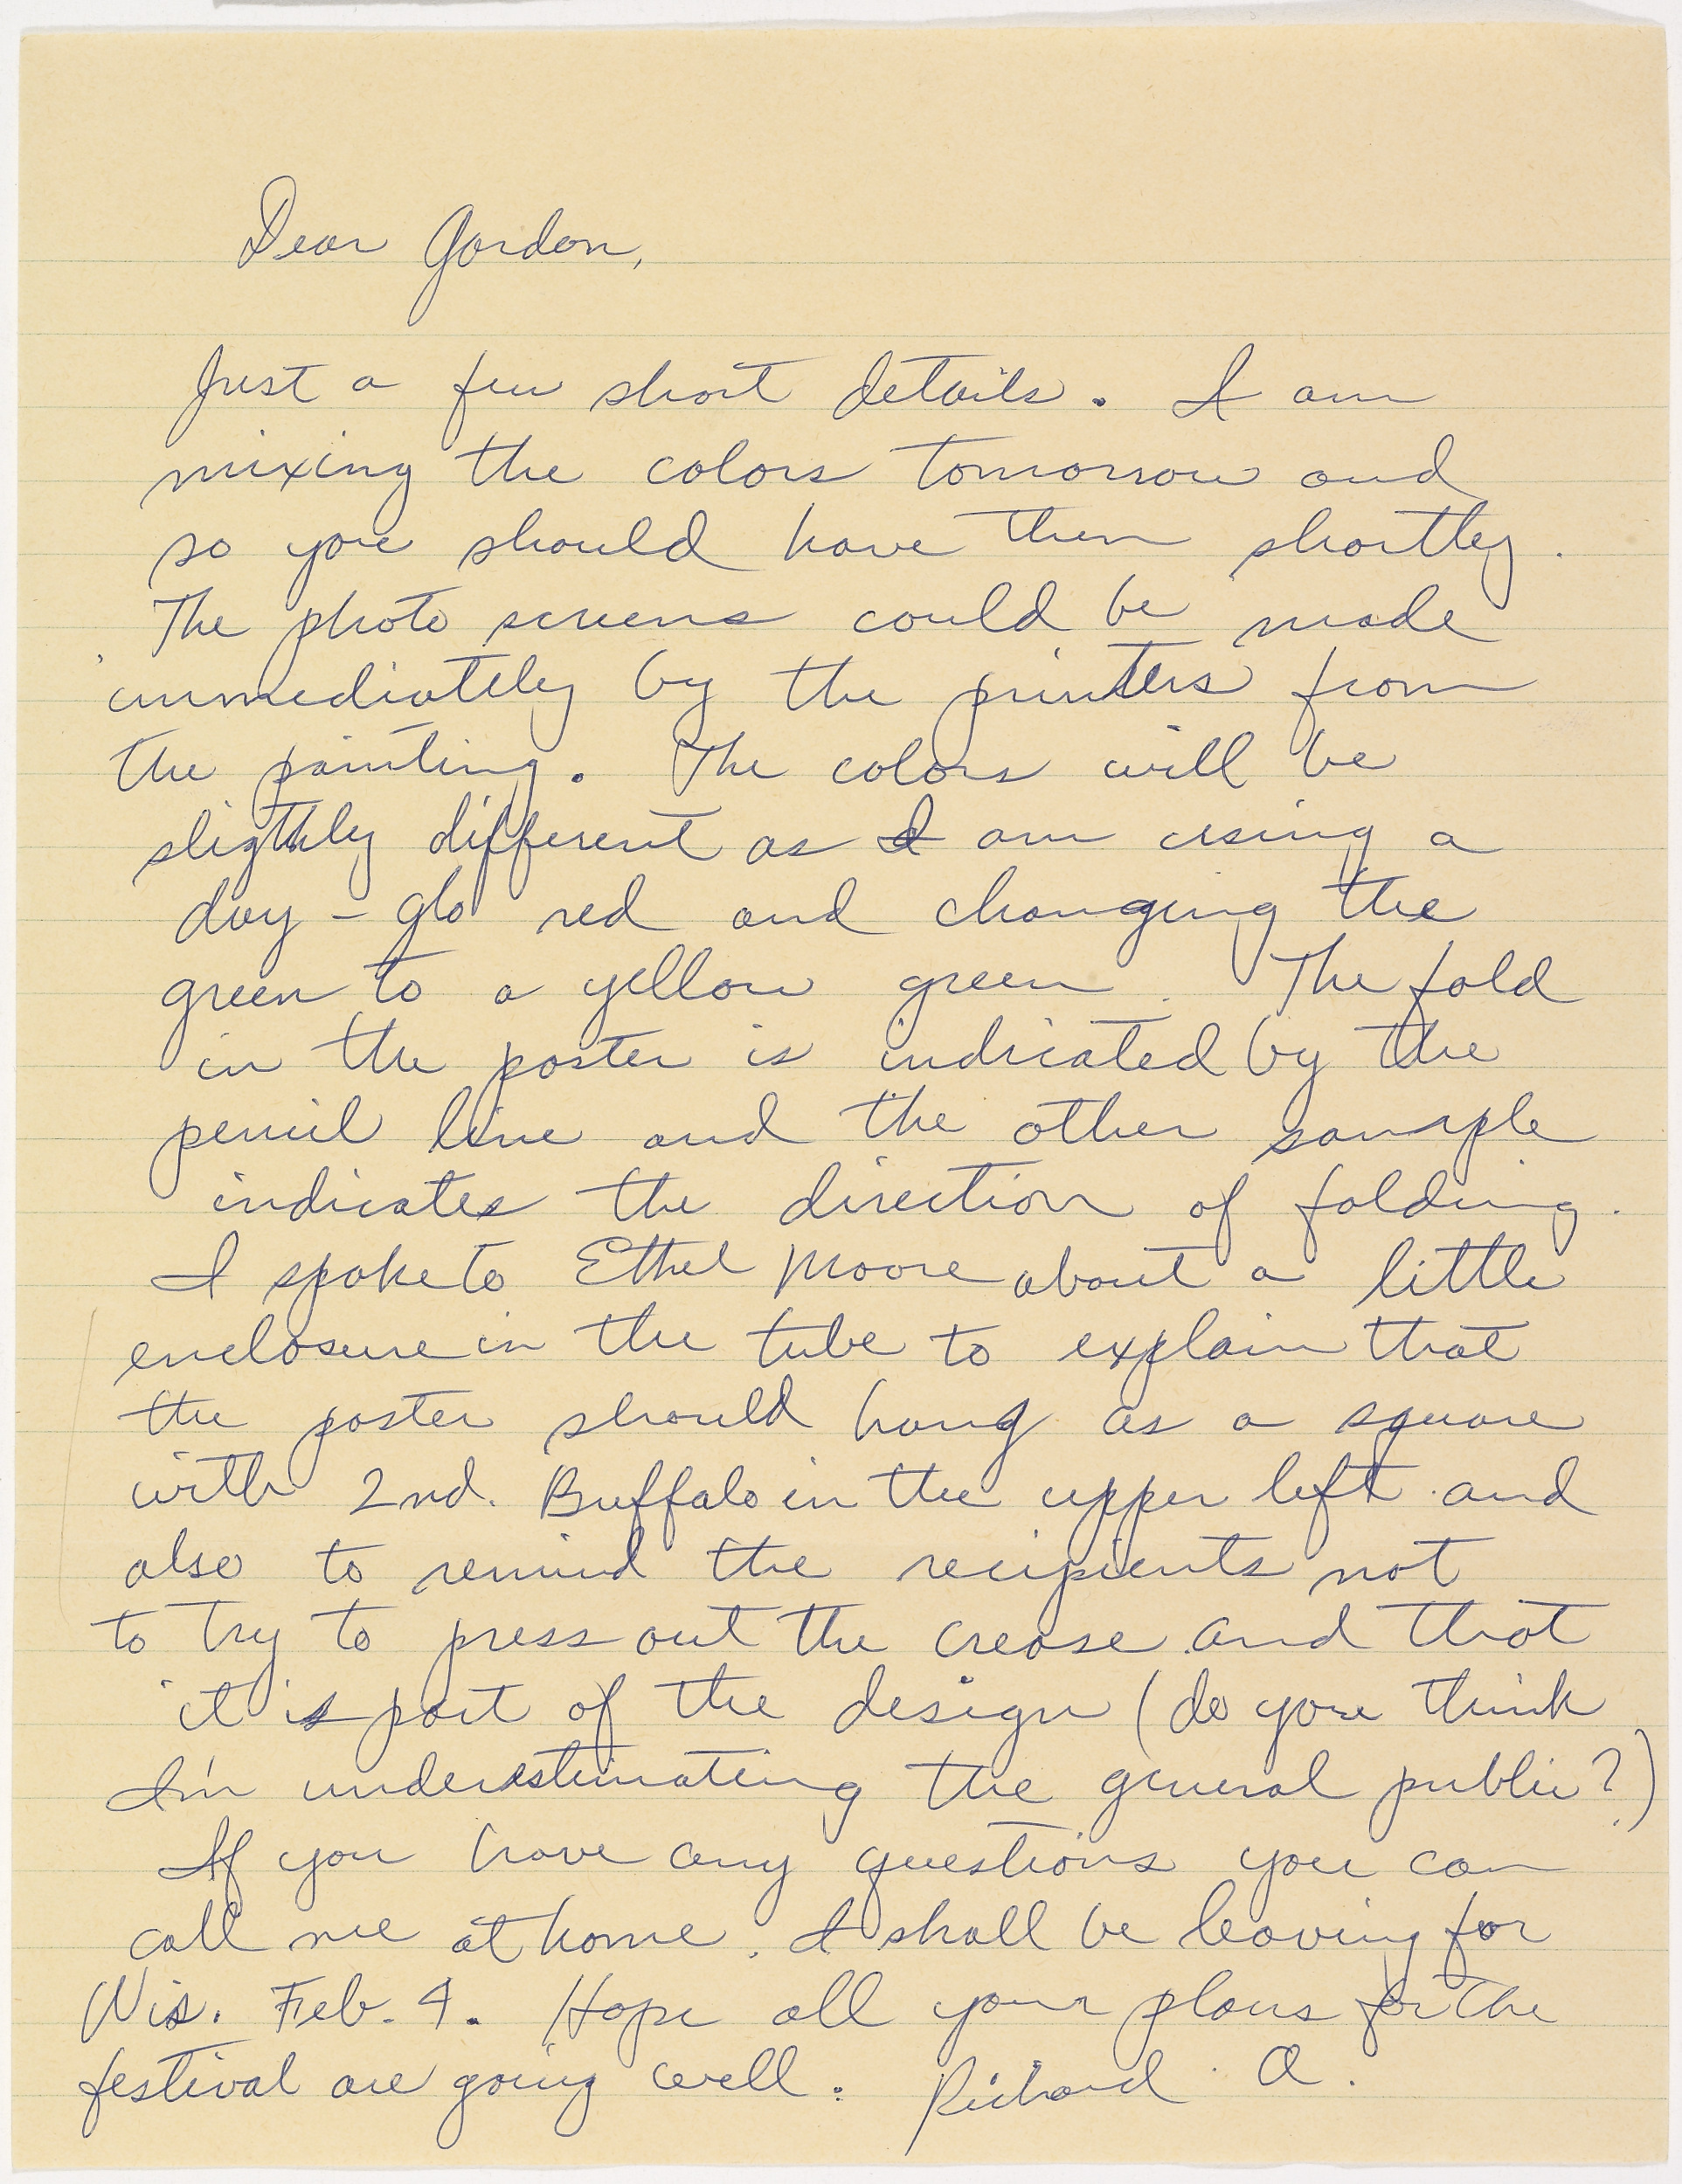 Dear Gordon,
Just a few short details. I am
mixing the colors tomorrow and
so you should have them shortly.
The photo screens could be made
immediately by the printers from
the painting. The colors will be
sligthly different as I am using a
day-glo red and changing the
green to a yellow green. The fold
in the poster is indicated by the
pencil line and the other sample
indicates the direction of folding.
I spoke to Ethel Moore about a little
enclosure in the tube to explain that
the poster should hang as a square
with 2nd. Buffalo in the upper left and
also to remind the recipients not
to try to press out the crease and that
it is part of the design (do you think
I'm underestimating the general public?)
If you have any questions you can
call me at home. I shall be leaving for
Wis. Feb. 4. Hope all your plans for the
festival are going well. Richard A.